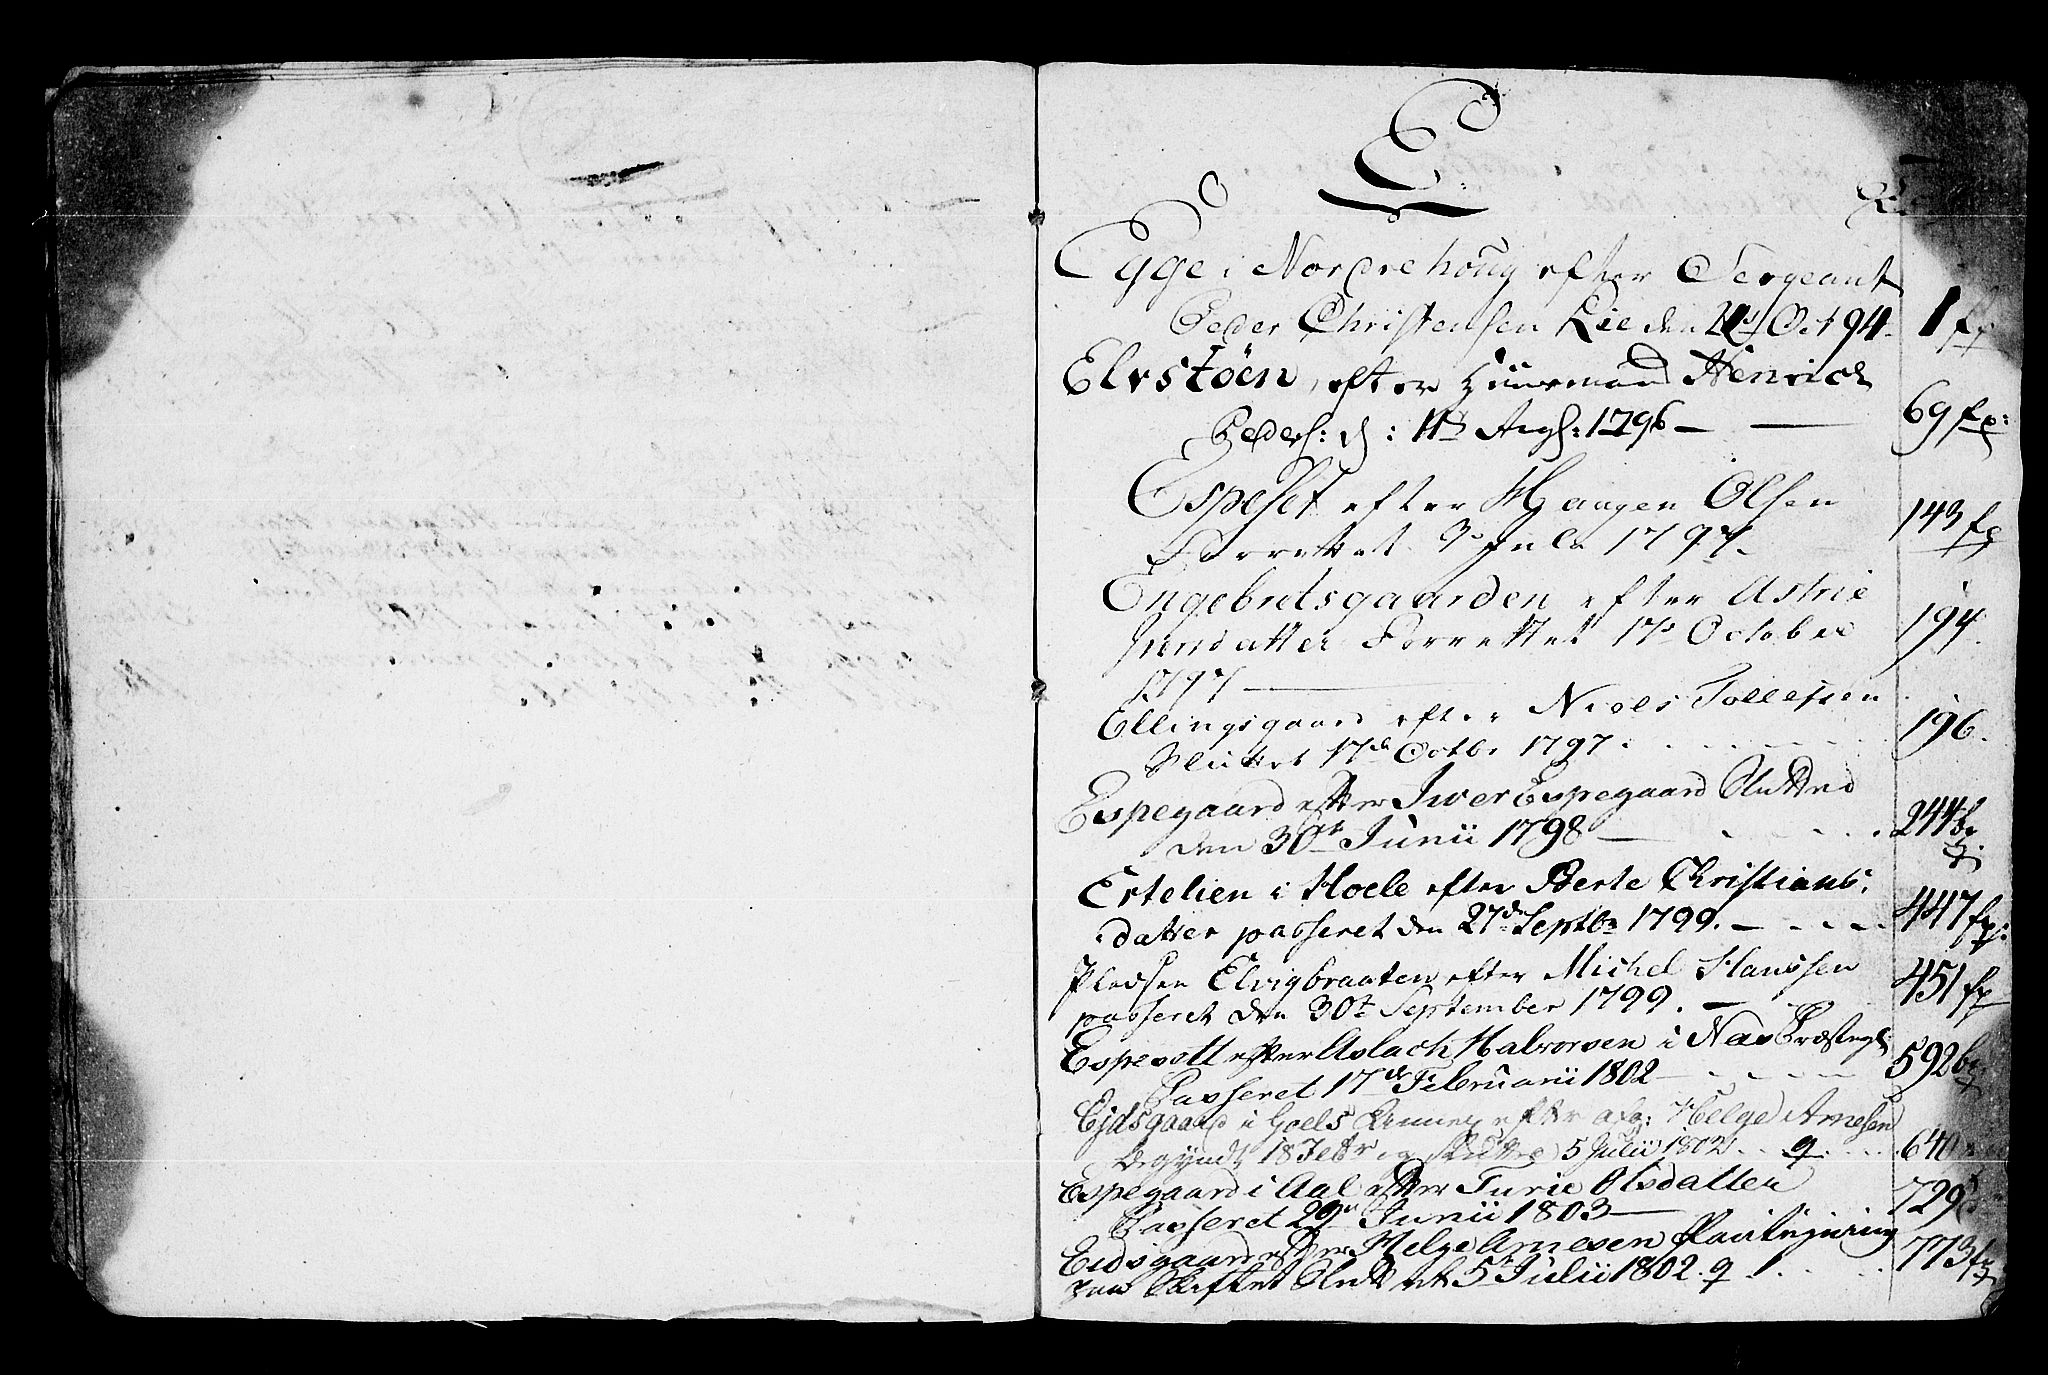 E
Egge i Nordrehoug efter Sergeant
Peder Christensen Lie den Oct 94 1
Elvstøen, efter Huusmand Henrich
Peders: d: 11 Aug: 1796 69 fp:
Espeset efter Haagen Olsen
Forrettet 3 Julii 1797 143 fp
Engebretsgaarden efter Astrie
Forrettet 17 October 194
1797
Ellingsgaard efter Niels Tollefsen
Sluttet 17de Octbr 1797 196
Espegaard efter Iver Espegaard Sluttet
den 30te Junii 1798 244
Ertelien i Hoele efter Berte Christians
datter passeret den 27de Septbr 1799. 447 fp:
Pladsen Elvigbraaten efter Michel Hanssen
passeret den 30te September 1799. 451 fp
Espesett efter Aslach Halvorsen i Næs Præstegl
Passeret 17de Februarii 1802 592
Ejdsgaard i Goels efter afg: Helge Arnesen
Begyndt 18 Febr og Sluttet 5 Julii 1802 640
Espegaard i Aal efter Turie Olsdatter
Passeret 29 Junii 1803 729
Eidsgaard efter Helge Arnesen
Skiftet Sluttet 5te Julii 1802. 773